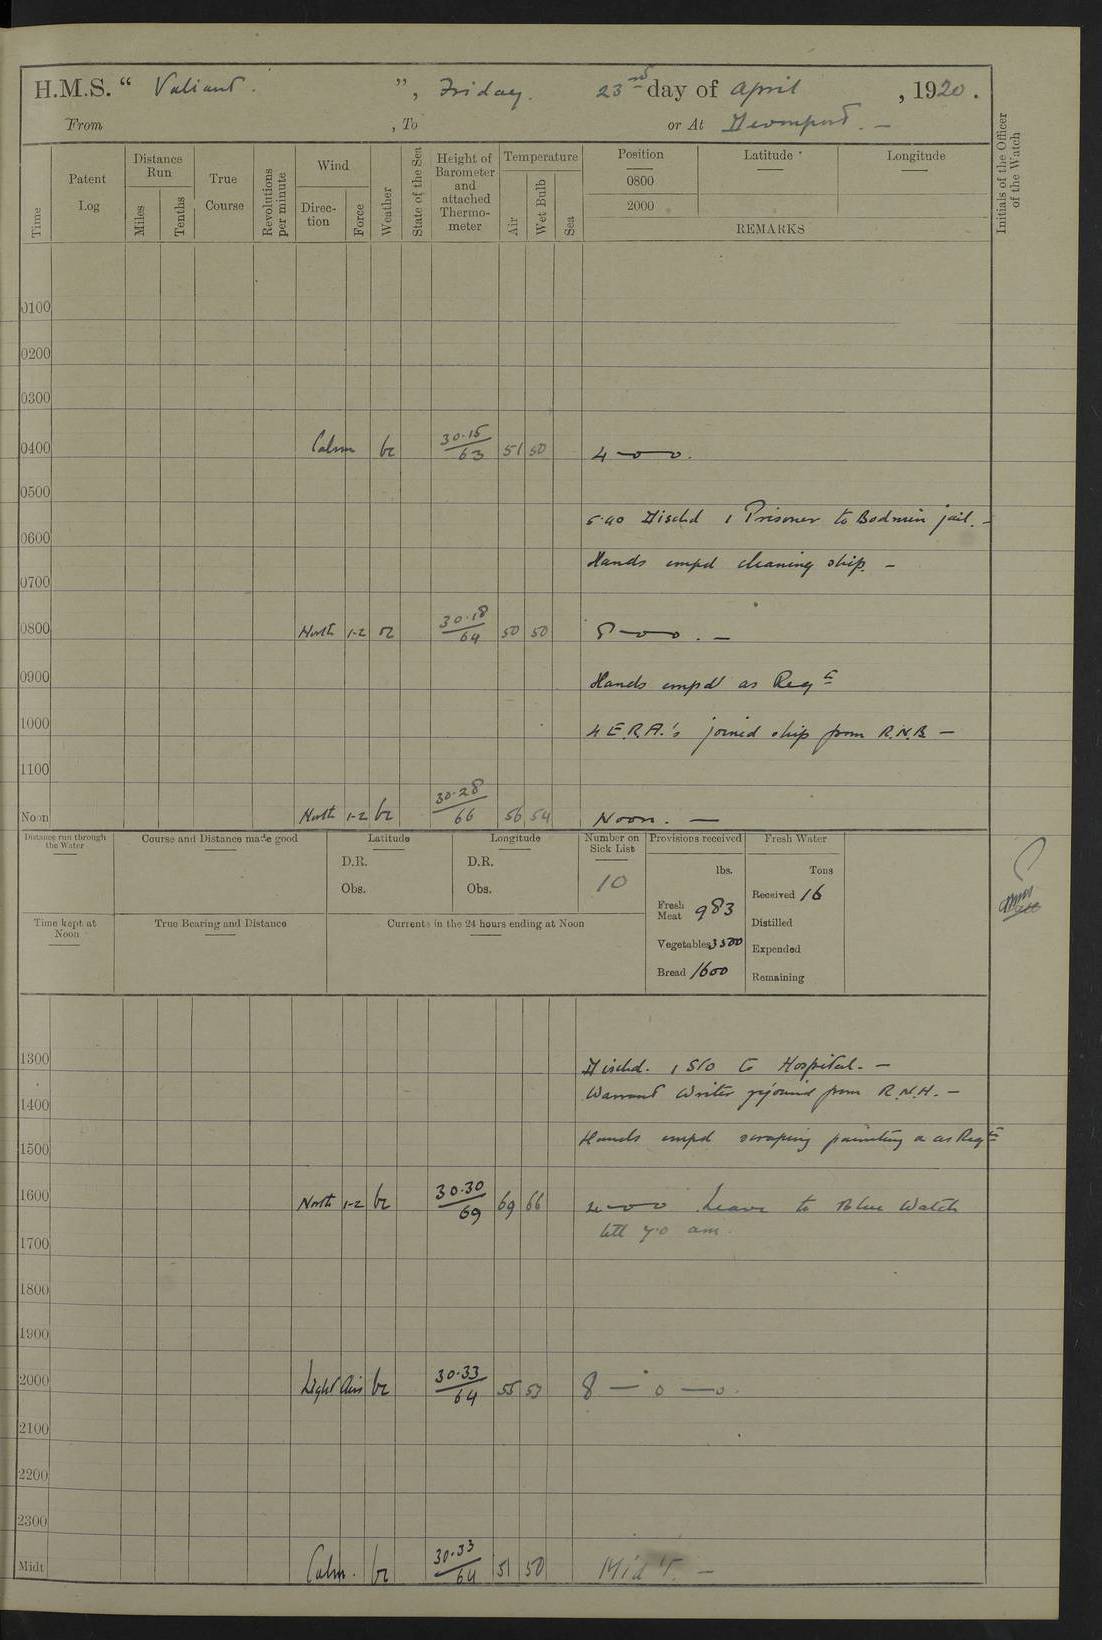 H.M.S. “ Valiant. ”, Friday. 23rd day of April , 1920.
From , To or At Devonport. —
Time
Patent Log
Distance Run
Miles
Tenths
True Course
Revolutions per minute
Wind
Direction
Force
Weather
State of the Sea
Height of Barometer and attached Thermometer
Temperature
Air
Wet Bulb
Sea
Position
0800
2000
Latitude
Longitude
REMARKS
Initials of the Officer of the Watch
0100
0200
0300
0400 Calm bc 30.15/63 51 50 4—o—o.
0500
5.40 Dischd 1 Prisoner to Bodmin jail. –
0600
Hands empd cleaning ship. –
0700
0800 North 1-2 30.18/64 50 50 8—o—o. —
0900
Hands empd as Reqte
1000
4 E.R.A.'s joined ship from R.N.B. –
1100
Noon North 1-2 bc 30.28/66 56 54 Noon. —
Distance run through the Water
Course and Distance made good
Latitude
D.R.
Obs.
Longitude
D.R.
Obs.
Number on Sick List
10
Provisions received
lbs.
Fresh Meat 983
Vegetables 3500
Bread 1600
Fresh Water
Tons
Received 16
Distilled
Expended
Remaining
Time kept at Noon
True Bearing and Distance
Currents in the 24 hours ending at Noon
1300
Dischd. 1 Sto to Hospital. –
1400
Warrant Writer rejoined from R.N.H. –
1500
Hands empd scraping painting & as Reqte
1600 North 1-2 bc 30.30/69 69 66 4—o—o Leave to Blue Watch
till 7.0 am
1700
1800
1900
2000 Light Airs bc 30.33/64 55 53 8 — o — o.
2100
2200
2300
Midt Calm. bc 30.33/64 51 50 Mid't. –